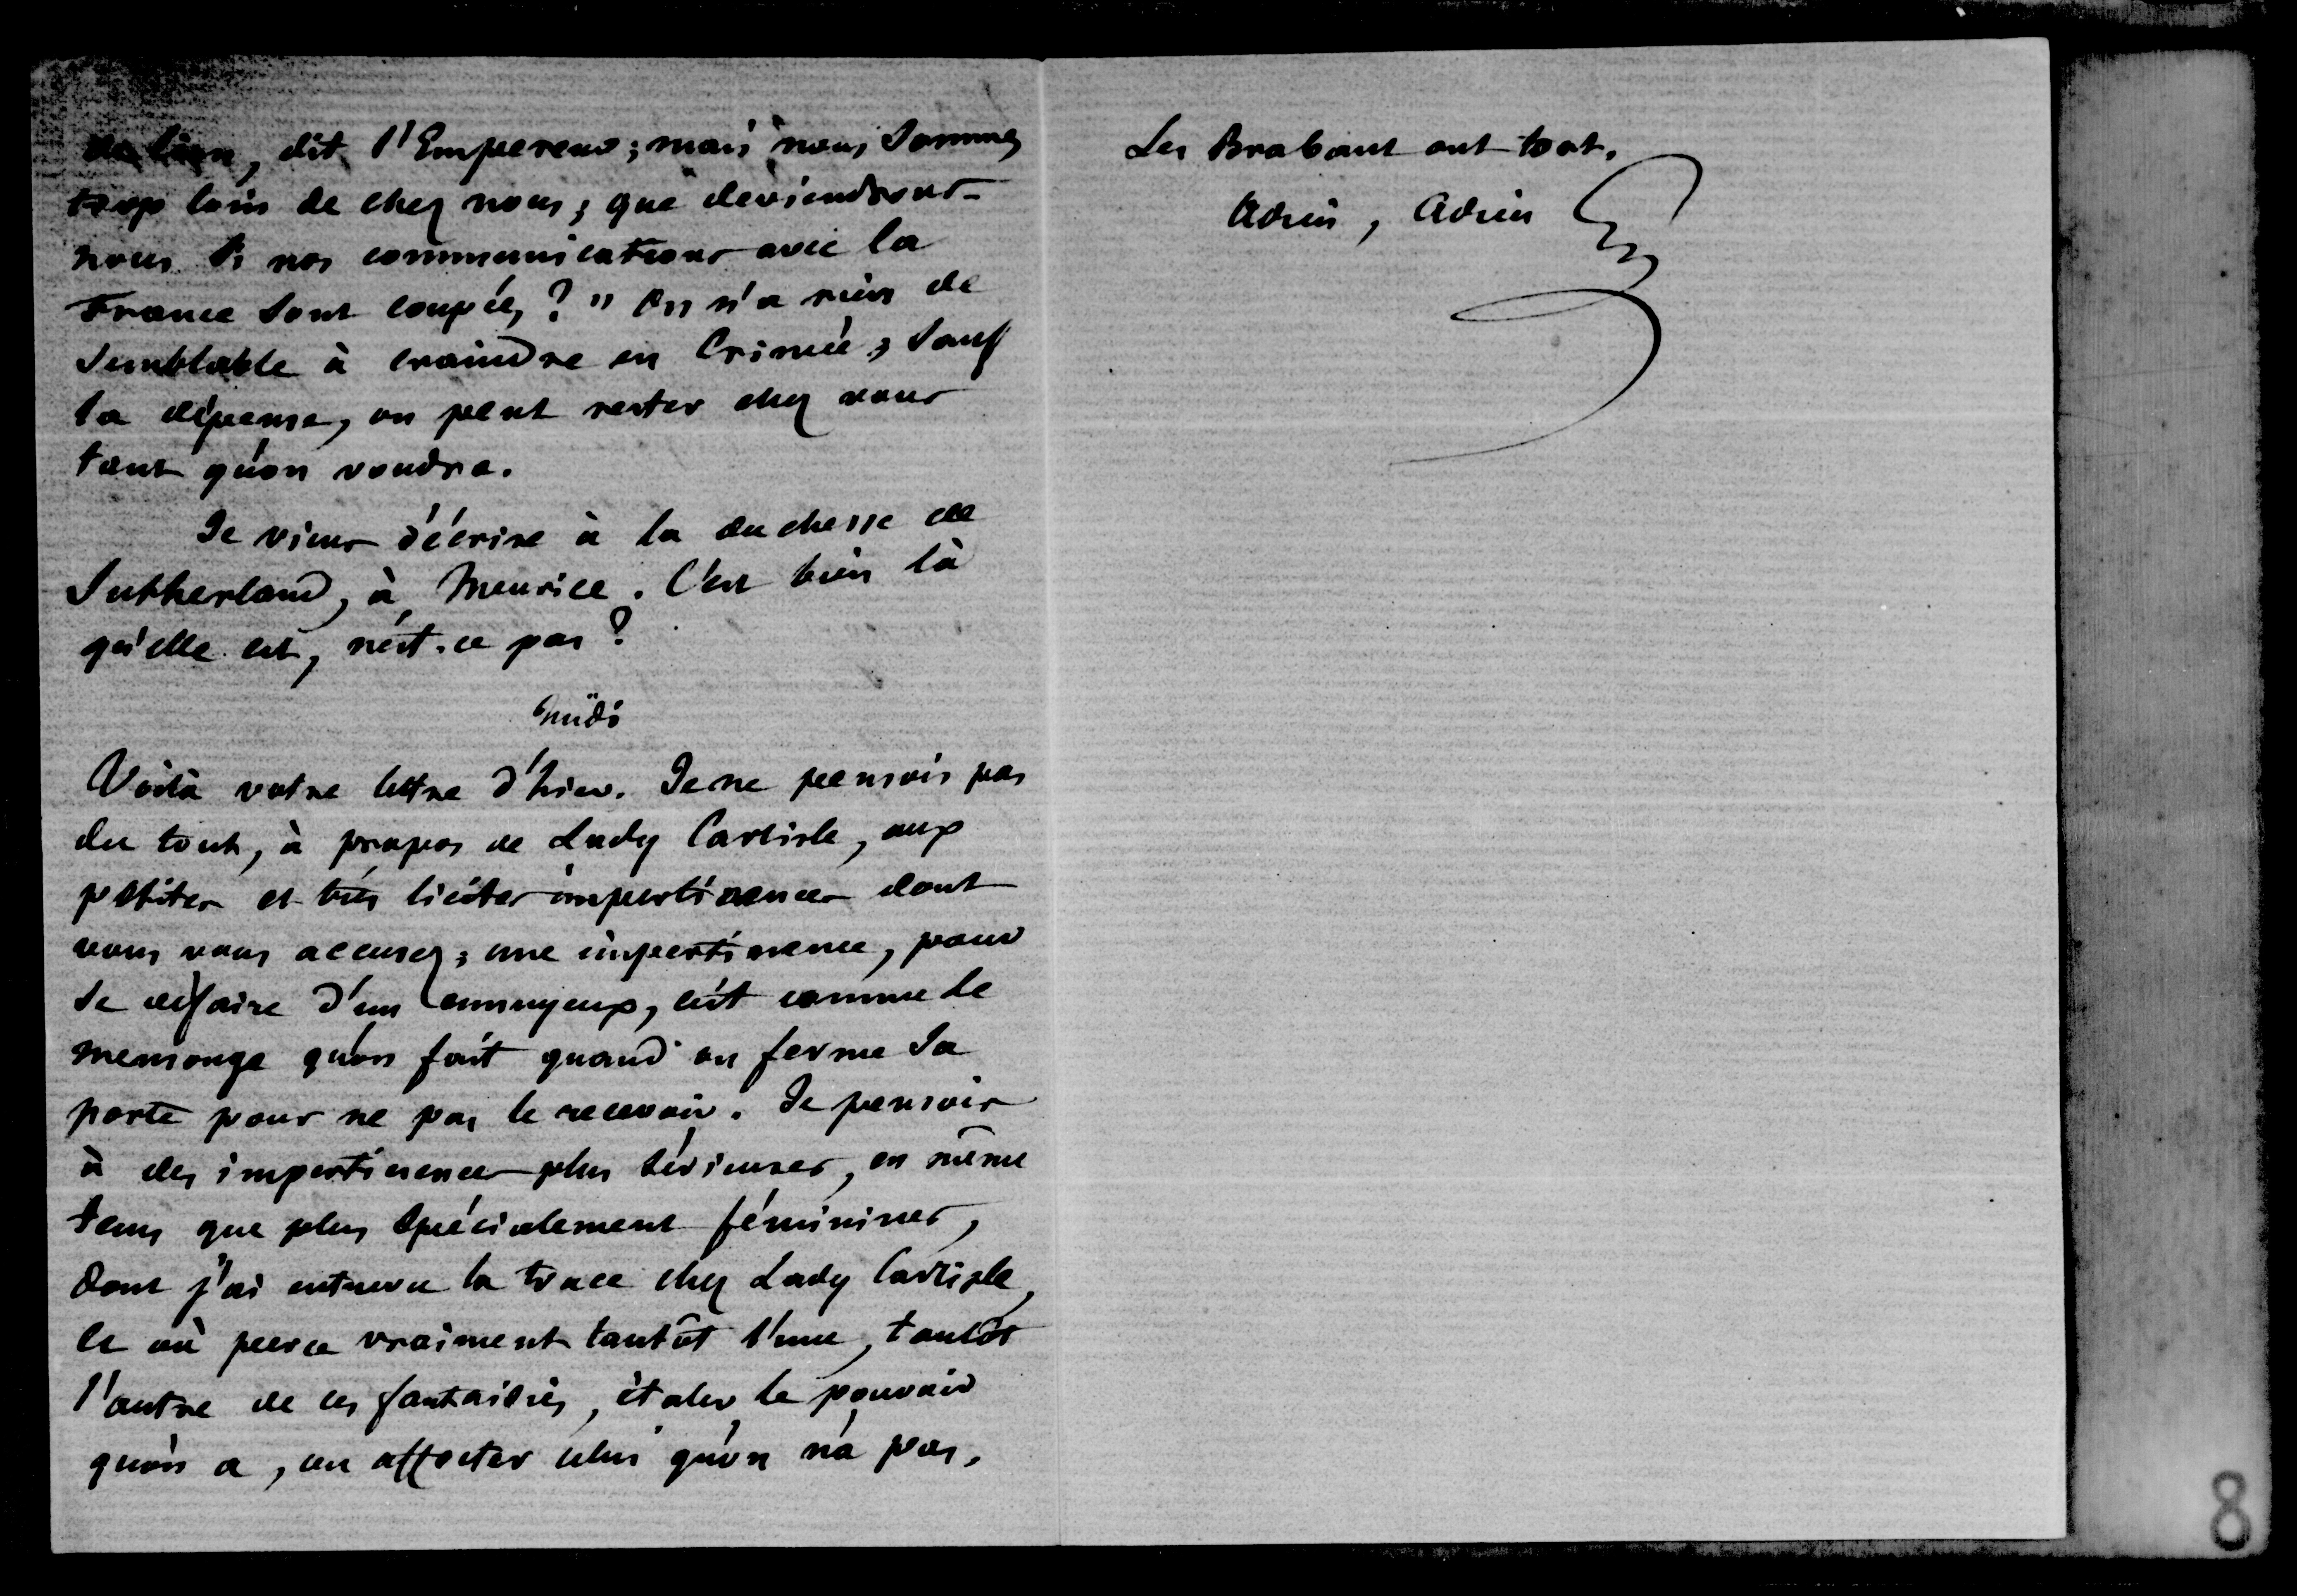 de lion, dit l'Empereur ; mais nous sommes
trop loin de chez nous ; que deviendrons-
nous si nos communications avec la
France sont coupées ? " On n'a rien de
semblable à craindre en Crimée ; sauf
la dépense, on peut rester chez vous
tant qu'on voudra.
Je viens d'écrire à la duchesse de
Sutherland, à Meurice. C'est bien là
qu'elle est, n'est-ce pas ?
Midi
Voilà votre lettre d'hier. Je ne pensois pas
du tout, à propos de Lady Carlisle, aux
petites et très licites impertinences dont
vous vous accusez ; une impertinence, pour
se défaire d'un ennuyeux, c'est comme le
mensonge qu'on fait quand on ferme sa
porte pour ne pas le recevoir. Je pensois
à des impertinences plus sérieuses, en même
tems que plus spécialement féminines,
dont j'ai entrevu la trace chez Lady Carlisle,
et où perce vraiment tantôt l'une, tantôt
l'autre de ces fantaisies, étaler le pouvoir
qu'on a, ou affecter celui qu'on n'a pas.
Les Brabant ont tort.
Adieu, Adieu
8